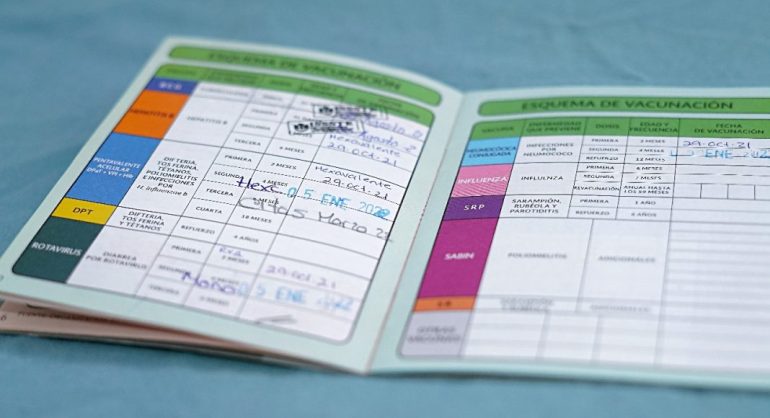 ESQUEMA DE VACUNACIÓN
BCG
HEPATITIS B
HEPATITIS B
PRIMERA
SEGUNDA
TERCERA
6 MESES
Hexavalente
29-OCT-21
PENTAVALENTE
ACELULAR
DPaT + VPI + Hib
DIFTERIA,
TOS FERINA
TÉTANOS,
POLIOMIELITIS
E INFECCIONES
POR
H. influenzae b
PRIMERA
2 MESES
Hexavalente
29-OCT-21
SEGUNDA
4 MESES
05 ENE 2022
TERCERA
6 MESES
5 Marzo 22
CUARTA
18 MESES
DPT
DIFTERIA,
TOS FERINA
Y TÉTANOS
REFUERZO
4 AÑOS
ROTAVIRUS
DIARREA
POR ROTAVIRUS
PRIMERA
2 MESES
29-OCT-21
SEGUNDA
05 ENE 2022
TERCERA
ESQUEMA DE VACUNACIÓN
VACUNA
ENFERMEDAD
QUE PREVIENE
DOSIS
EDAD Y
FRECUENCIA
FECHA
DE VACUNACIÓN
NEUMOCÓCICA
CONJUGADA
INFECCIONES
POR
NEUMOCOCO
PRIMERA
2 MESES
29-OCT-21
SEGUNDA
4 MESES
5 ENE 2022
REFUERZO
12 MESES
INFLUENZA
INFLUENZA
PRIMERA
6 MESES
SEGUNDA
7 MESES
REVACUNACIÓN
ANUAL HASTA
LOS 59 MESES
SRP
SARAMPIÓN,
RUBÉOLA Y
PAROTIDITIS
PRIMERA
1 AÑO
REFUERZO
6 AÑOS
SABIN
POLIOMIELITIS
ADICIONALES
SR
ADICIONALES
OTRAS
VACUNAS